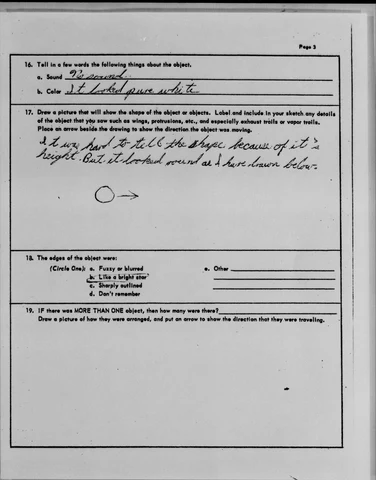 Page 3
16. Tell in a few words the following things about the object.
a. Sound No sound
b. Color It looked pure white
17. Draw a picture that will show the shape of the object or objects. Label and include in your sketch any details
of the object that you saw such as wings, protrusions, etc., and especially exhaust trails or vapor trails.
Place an arrow beside the drawing to show the direction the object was moving.
It was hard to tell the shape because of it's
height. But it looked round as I have drawn below.
18. The edges of the object were:
(Circle One): a. Fuzzy or blurred e. Other
b. Like a bright star
c. Sharply outlined
d. Don't remember
19. IF there was MORE THAN ONE object, then how many were there?
Draw a picture of how they were arranged, and put an arrow to show the direction that they were traveling.